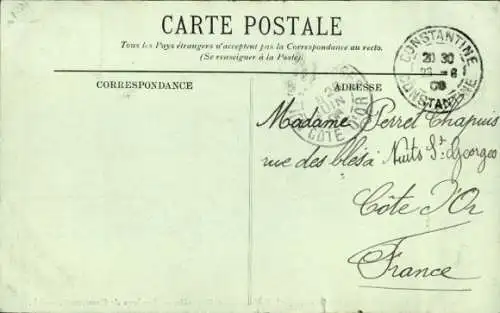 CARTE POSTALE
Tous les Pays étrangers n'acceptent pas la Correspondance au recto.
(Se renseigner à la Poste).
CORRESPONDANCE
ADRESSE
CONSTANTINE
20 30
CONSTANTINE
JUIN
COTE D'OR
Madame Perret Chapuis
rue des blés à Nuits St Georges
Côte d'Or
France